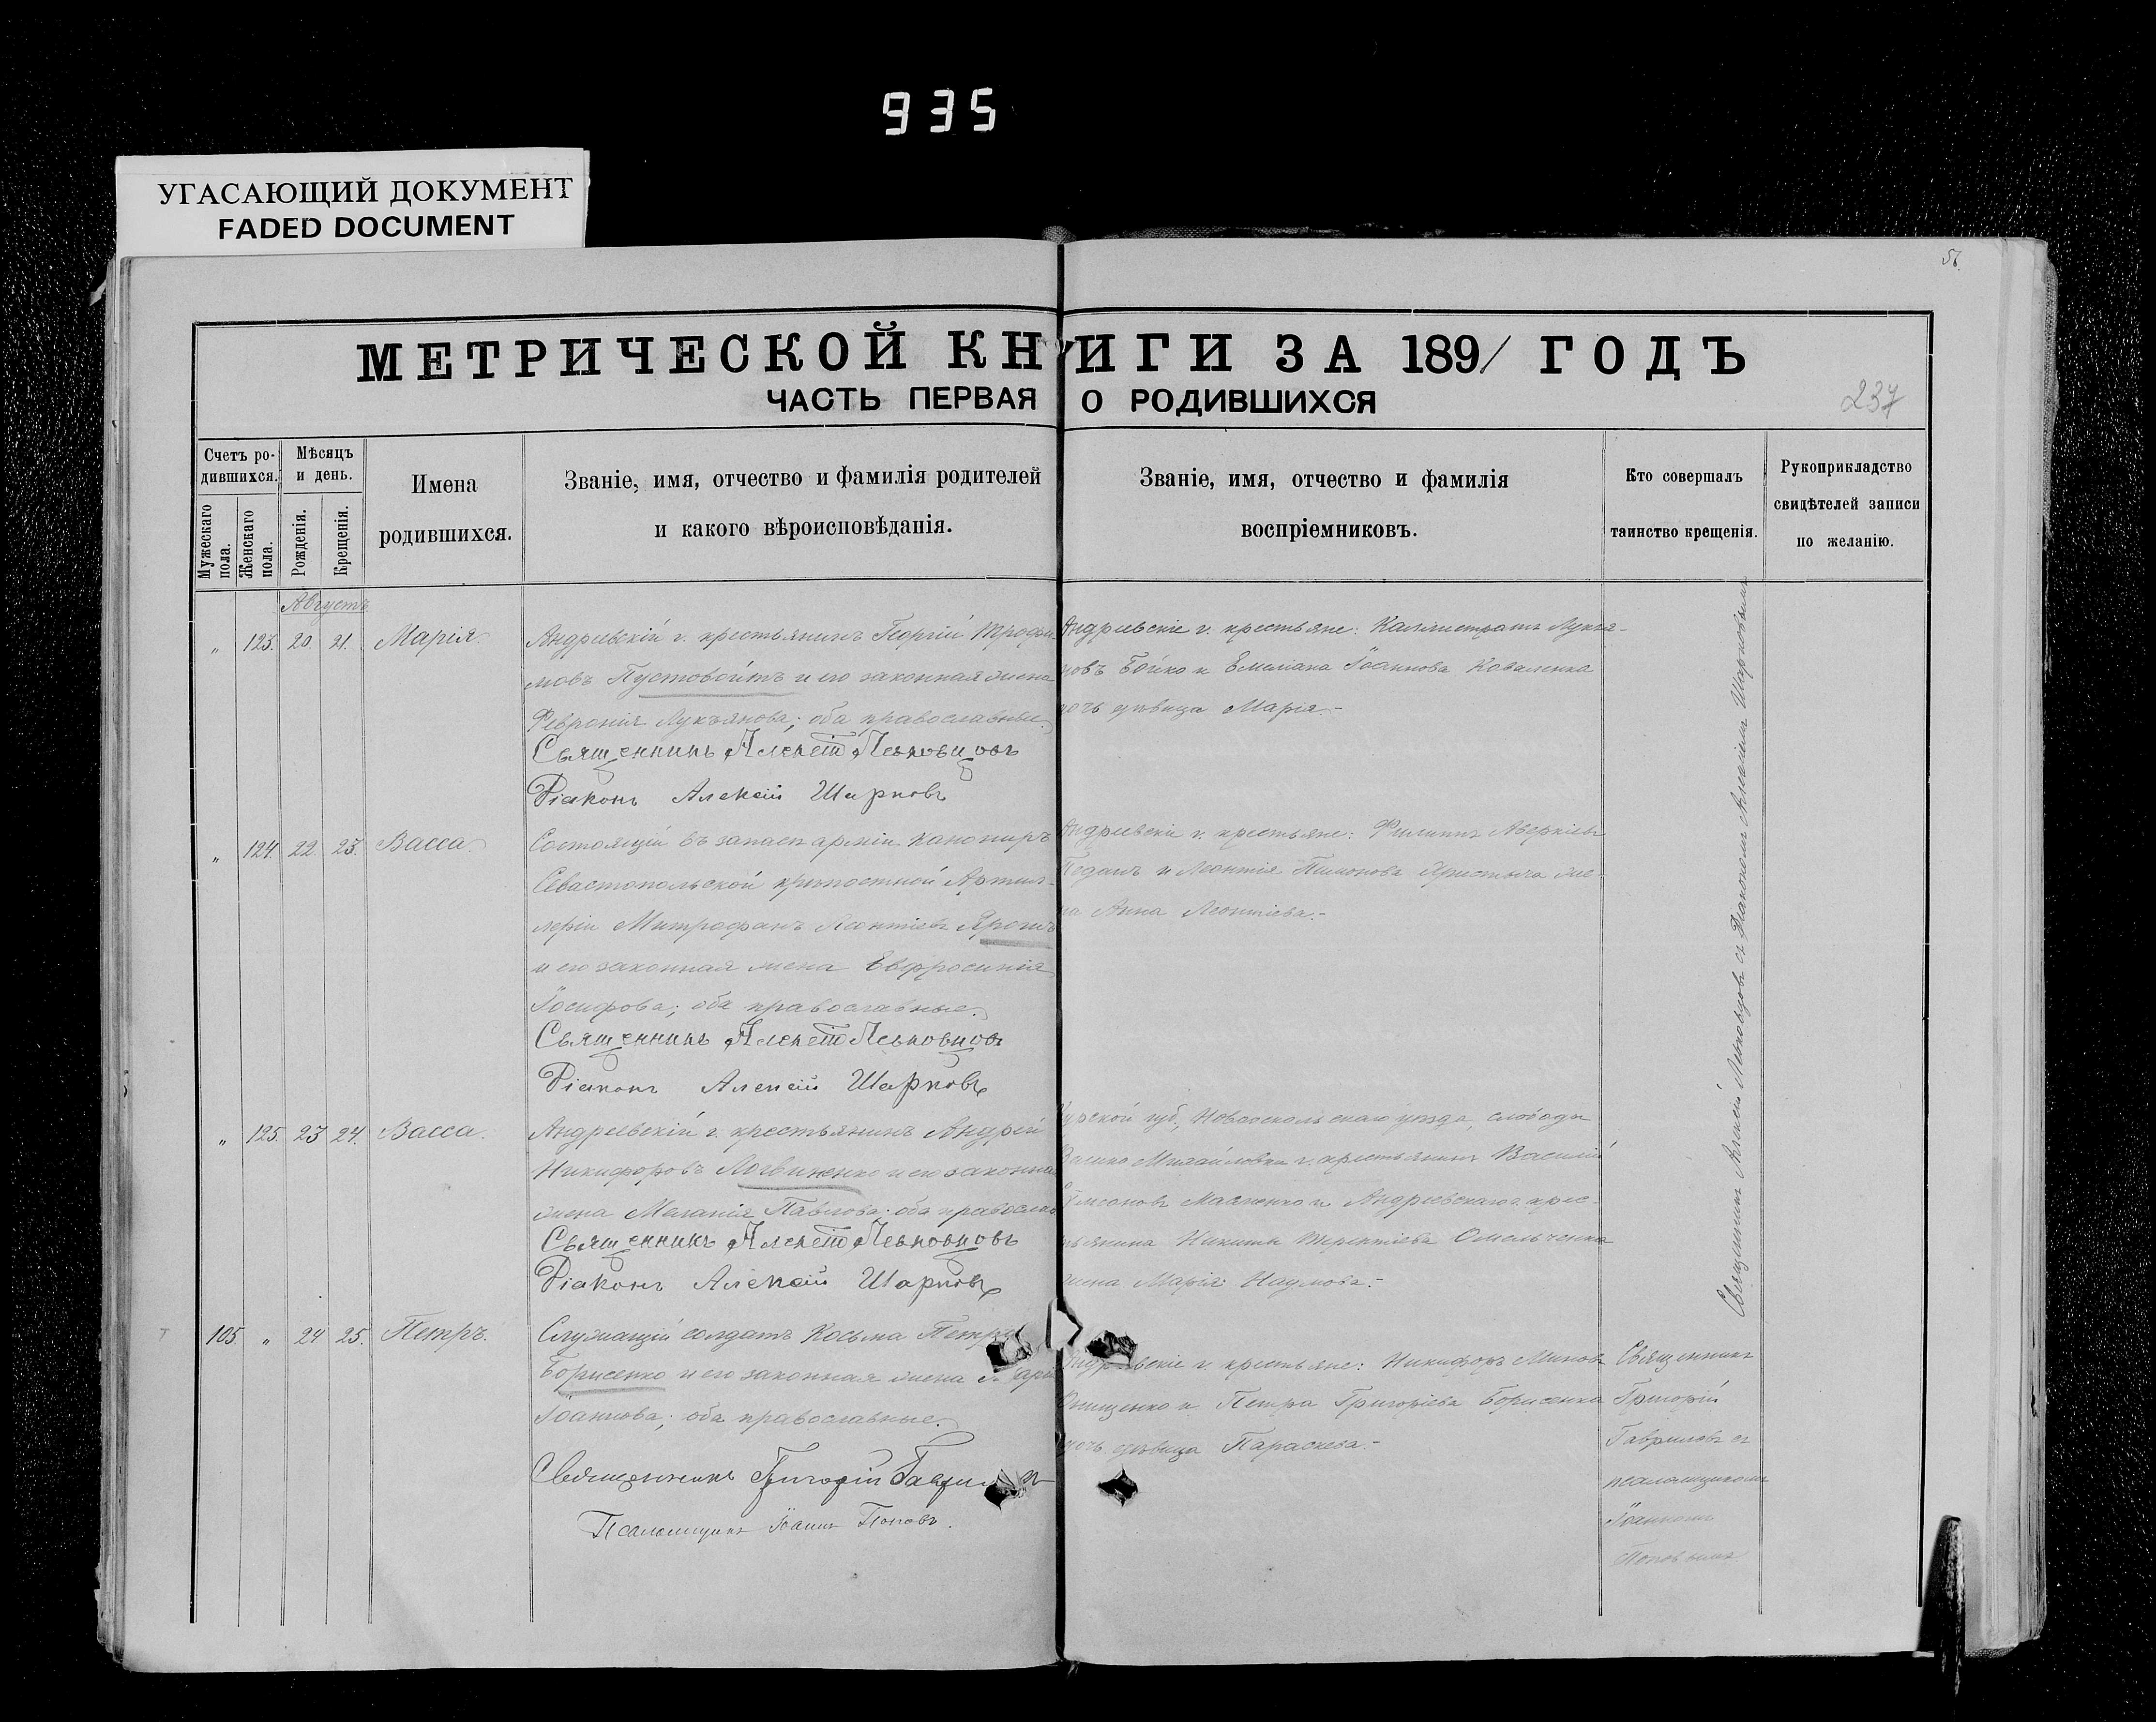 935
УГАСАЮЩИЙ ДОКУМЕНТ
FADED DOCUMENT
56.
МЕТРИЧЕСКОЙ КНИГИ ЗА 1891 ГОДЪ
ЧАСТЬ ПЕРВАЯ О РОДИВШИХСЯ
237
Счетъ родившихся.
Мужескаго пола.
Женскаго пола.
Мѣсяцъ и день.
Рожденія.
Крещенія.
Имена
родившихся.
Званіе, имя, отчество и фамилія родителей
и какого вѣроисповѣданія.
Званіе, имя, отчество и фамилія
воспріемниковъ.
Кто совершалъ
таинство крещенія.
Рукоприкладство
свидѣтелей записи
по желанію.
Августъ
„ 123. 20. 21. Марія.
Андреевскій г. крестьянинъ Георгій Трофи-
мовъ Пустовойтъ и его законная жена
Февронія Лукьянова; оба православные.
Священникъ Алексій Левковцовъ
Діаконъ Алексій Шарковъ
Андреевскіе г. крестьяне: Каллистратъ Лукья-
новъ Бойко и Емиліана Іоаннова Коваленка
дочь дѣвица Марія.-
„ 124. 22. 23. Васса.
Состоящій въ запасѣ арміи канониръ
Севастопольской крѣпостной Артил-
леріи Митрофанъ Леонтіевъ
и его законная жена Евфросинія
Іосифова; оба православные.
Священникъ Алексій Левковцовъ
Діаконъ Алексій Шарковъ
Андреевскіе г. крестьяне: Филиппъ Аверкіевъ
Педанъ и Леонтія же-
на Анна Леонтіева.-
„ 125. 23 24. Васса.
Андреевскій г. крестьянинъ Андрей
Никифоровъ Логвиненко и его законная
жена Меланія Павлова; оба православ
Священникъ Алексій Левковцовъ
Діаконъ Алексій Шарковъ
Курской губ., Новооскольскаго уѣзда, слободы
Михайловки г. крестьянинъ Василій
и Андреевскаго г. крес-
тьянина Никиты Терентіева Омельченка
жена Марія Наумова.-
Священникъ Алексій Левковцовъ съ Діакономъ Алексіемъ Шарковымъ
105. „ 24 25. Петръ.
Служащій солдатъ Косьма Петровъ
Борисенко и его законная жена
Іоаннова; оба православные.
Священникъ Григорій Гавриловъ
Псаломщикъ Іоаннъ Поповъ.
Андреевскіе г. крестьяне: Никифоръ Миновъ
Онищенко и Петра Григоріева Борисенка
дочь дѣвица Параскева.-
Священникъ
Григорій
Гавриловъ съ
псаломщикомъ
Іоанномъ
Поповымъ.